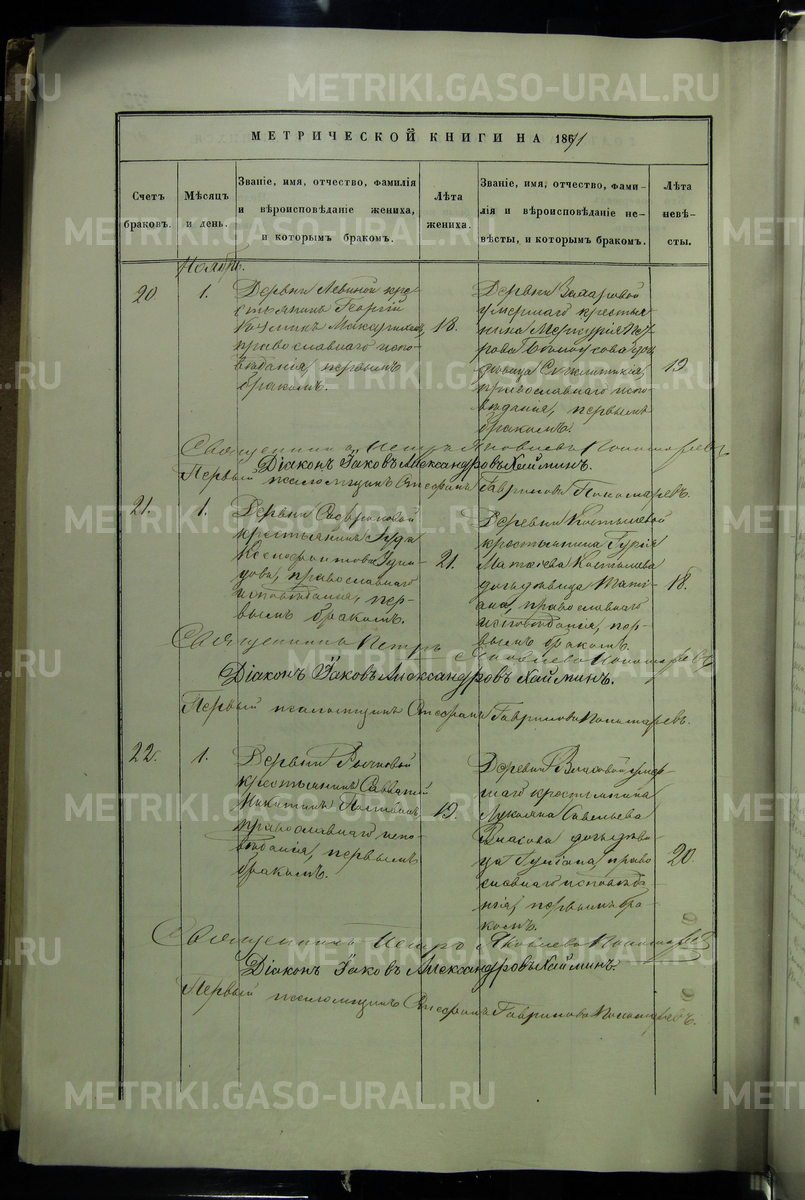 МЕТРИЧЕСКОЙ КНИГИ НА 1871
Счетъ браковъ.
Мѣсяцъ и день.
Званіе, имя, отчество, фамилія
и вѣроисповѣданіе жениха,
и которымъ бракомъ.
Лѣта жениха.
Званіе, имя, отчество, фами-
лія и вѣроисповѣданіе не-
вѣсты, и которымъ бракомъ.
Лѣта невѣ-
сты.
Ноябрь.
20
1.
Деревни Левиной кре-
стьянинъ Георгій
Козминъ
православнаго испо-
вѣданія, первымъ
бракомъ.
18.
Деревни Захаровой
умершаго крестья
нина Меркурія Пет
рова доч
дѣвица
православнаго испо-
вѣданія, первымъ
бракомъ.
19.
Священникъ Петръ Яковлевъ Пономаревъ
Діаконъ Іаковъ Александровъ Хайминъ.
Первый псаломщикъ Стефанъ Гавриловъ Пономаревъ.
21.
1.
Деревни
крестьянинъ
Ксенофонтовъ
православнаго
исповѣданія, пер-
вымъ бракомъ.
21.
Деревни Костылевой
крестьянина Гурія
Матвѣева Костылева
дочь дѣвица Татi-
ана, православнаго
исповѣданія, пер-
вымъ бракомъ.
18.
Священникъ Петръ Яковлевъ Пономаревъ
Діаконъ Іаковъ Александровъ Хайминъ.
Первый псаломщикъ Стефанъ Гавриловъ Пономаревъ.
22.
1.
Деревни Рычковой
крестьянинъ Савватій
Никитинъ
православнаго испо-
вѣданія, первымъ
бракомъ.
19.
Деревни Власовой умер-
шаго крестьянина
Лукіяна Савельева
Власова дочь дѣви-
ца право
славнаго исповѣда
нія, первымъ бра-
комъ.
20.
Священникъ Петръ Яковлевъ Пономаревъ
Діаконъ Іаковъ Александровъ Хайминъ.
Первый псаломщикъ Стефанъ Гавриловъ Пономаревъ.
METRIKI.GASO-URAL.RU